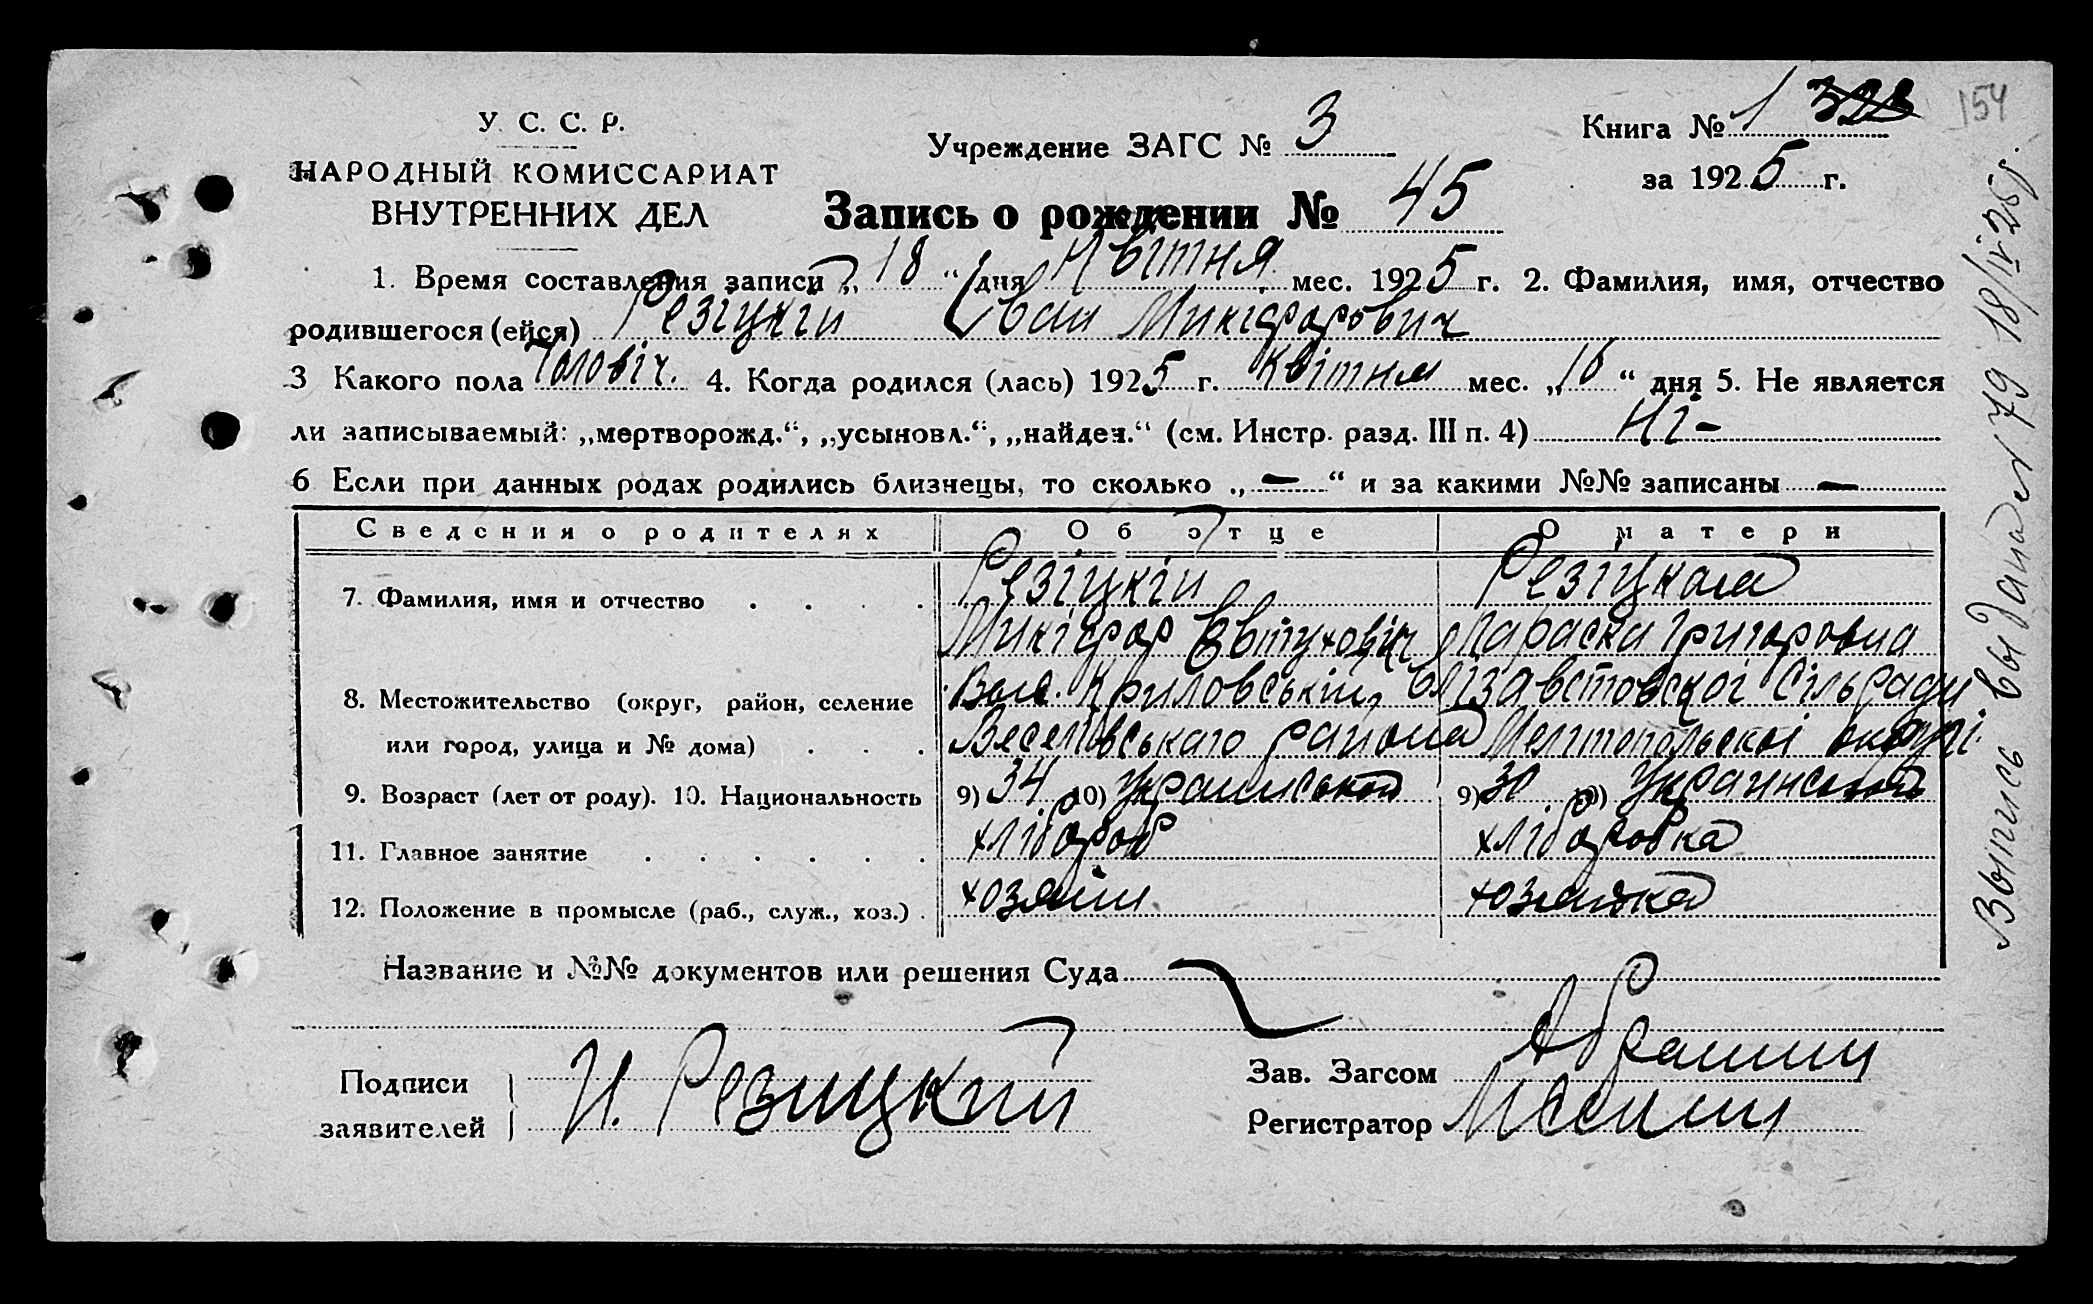 У. С. С. Р.
НАРОДНЫЙ КОМИССАРИАТ
ВНУТРЕННИХ ДЕЛ
Учреждение ЗАГС № 3
Книга № 1 328
154
за 1925 г.
Запись о рождении № 45
1. Время составления записи „ 18 “ дня Квітня мес. 1925 г. 2. Фамилия, имя, отчество
родившегося (ейся) Резіцкій Іван Микіфорович
3 Какого пола Чоловіч. 4. Когда родился (лась) 1925 г. Квітня мес. „16 “ дня 5. Не является
ли записываемый: „мертворожд.“, „усыновл.“, „найден.“ (см. Инстр. разд. III п. 4) Ні –
6 Если при данных родах родились близнецы, то сколько „ — “ и за какими №№ записаны —
Сведения о родителях Об отце О матери
7. Фамилия, имя и отчество Резіцкій Резіцкая
Микіфор Евтухович Параска Григоровна
8. Местожительство (округ, район, селение Криловський, Єлізаветовской Сільради
или город, улица и № дома) Веселовського района Мелитопольскої округі.
9. Возраст (лет от роду). 10. Национальность 9) 34 10) Украинськой 9) 30 10) Украинской
11. Главное занятие хлібороб хлібборобка
12. Положение в промысле (раб., служ., хоз.) хозяин хозяйка
Название и №№ документов или решения Суда
Подписи
заявителей
И. Резицкий
Зав. Загсом
Регистратор
Выпись выдана 79 18/IV 25 г.